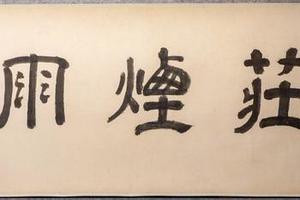 莊煙雨